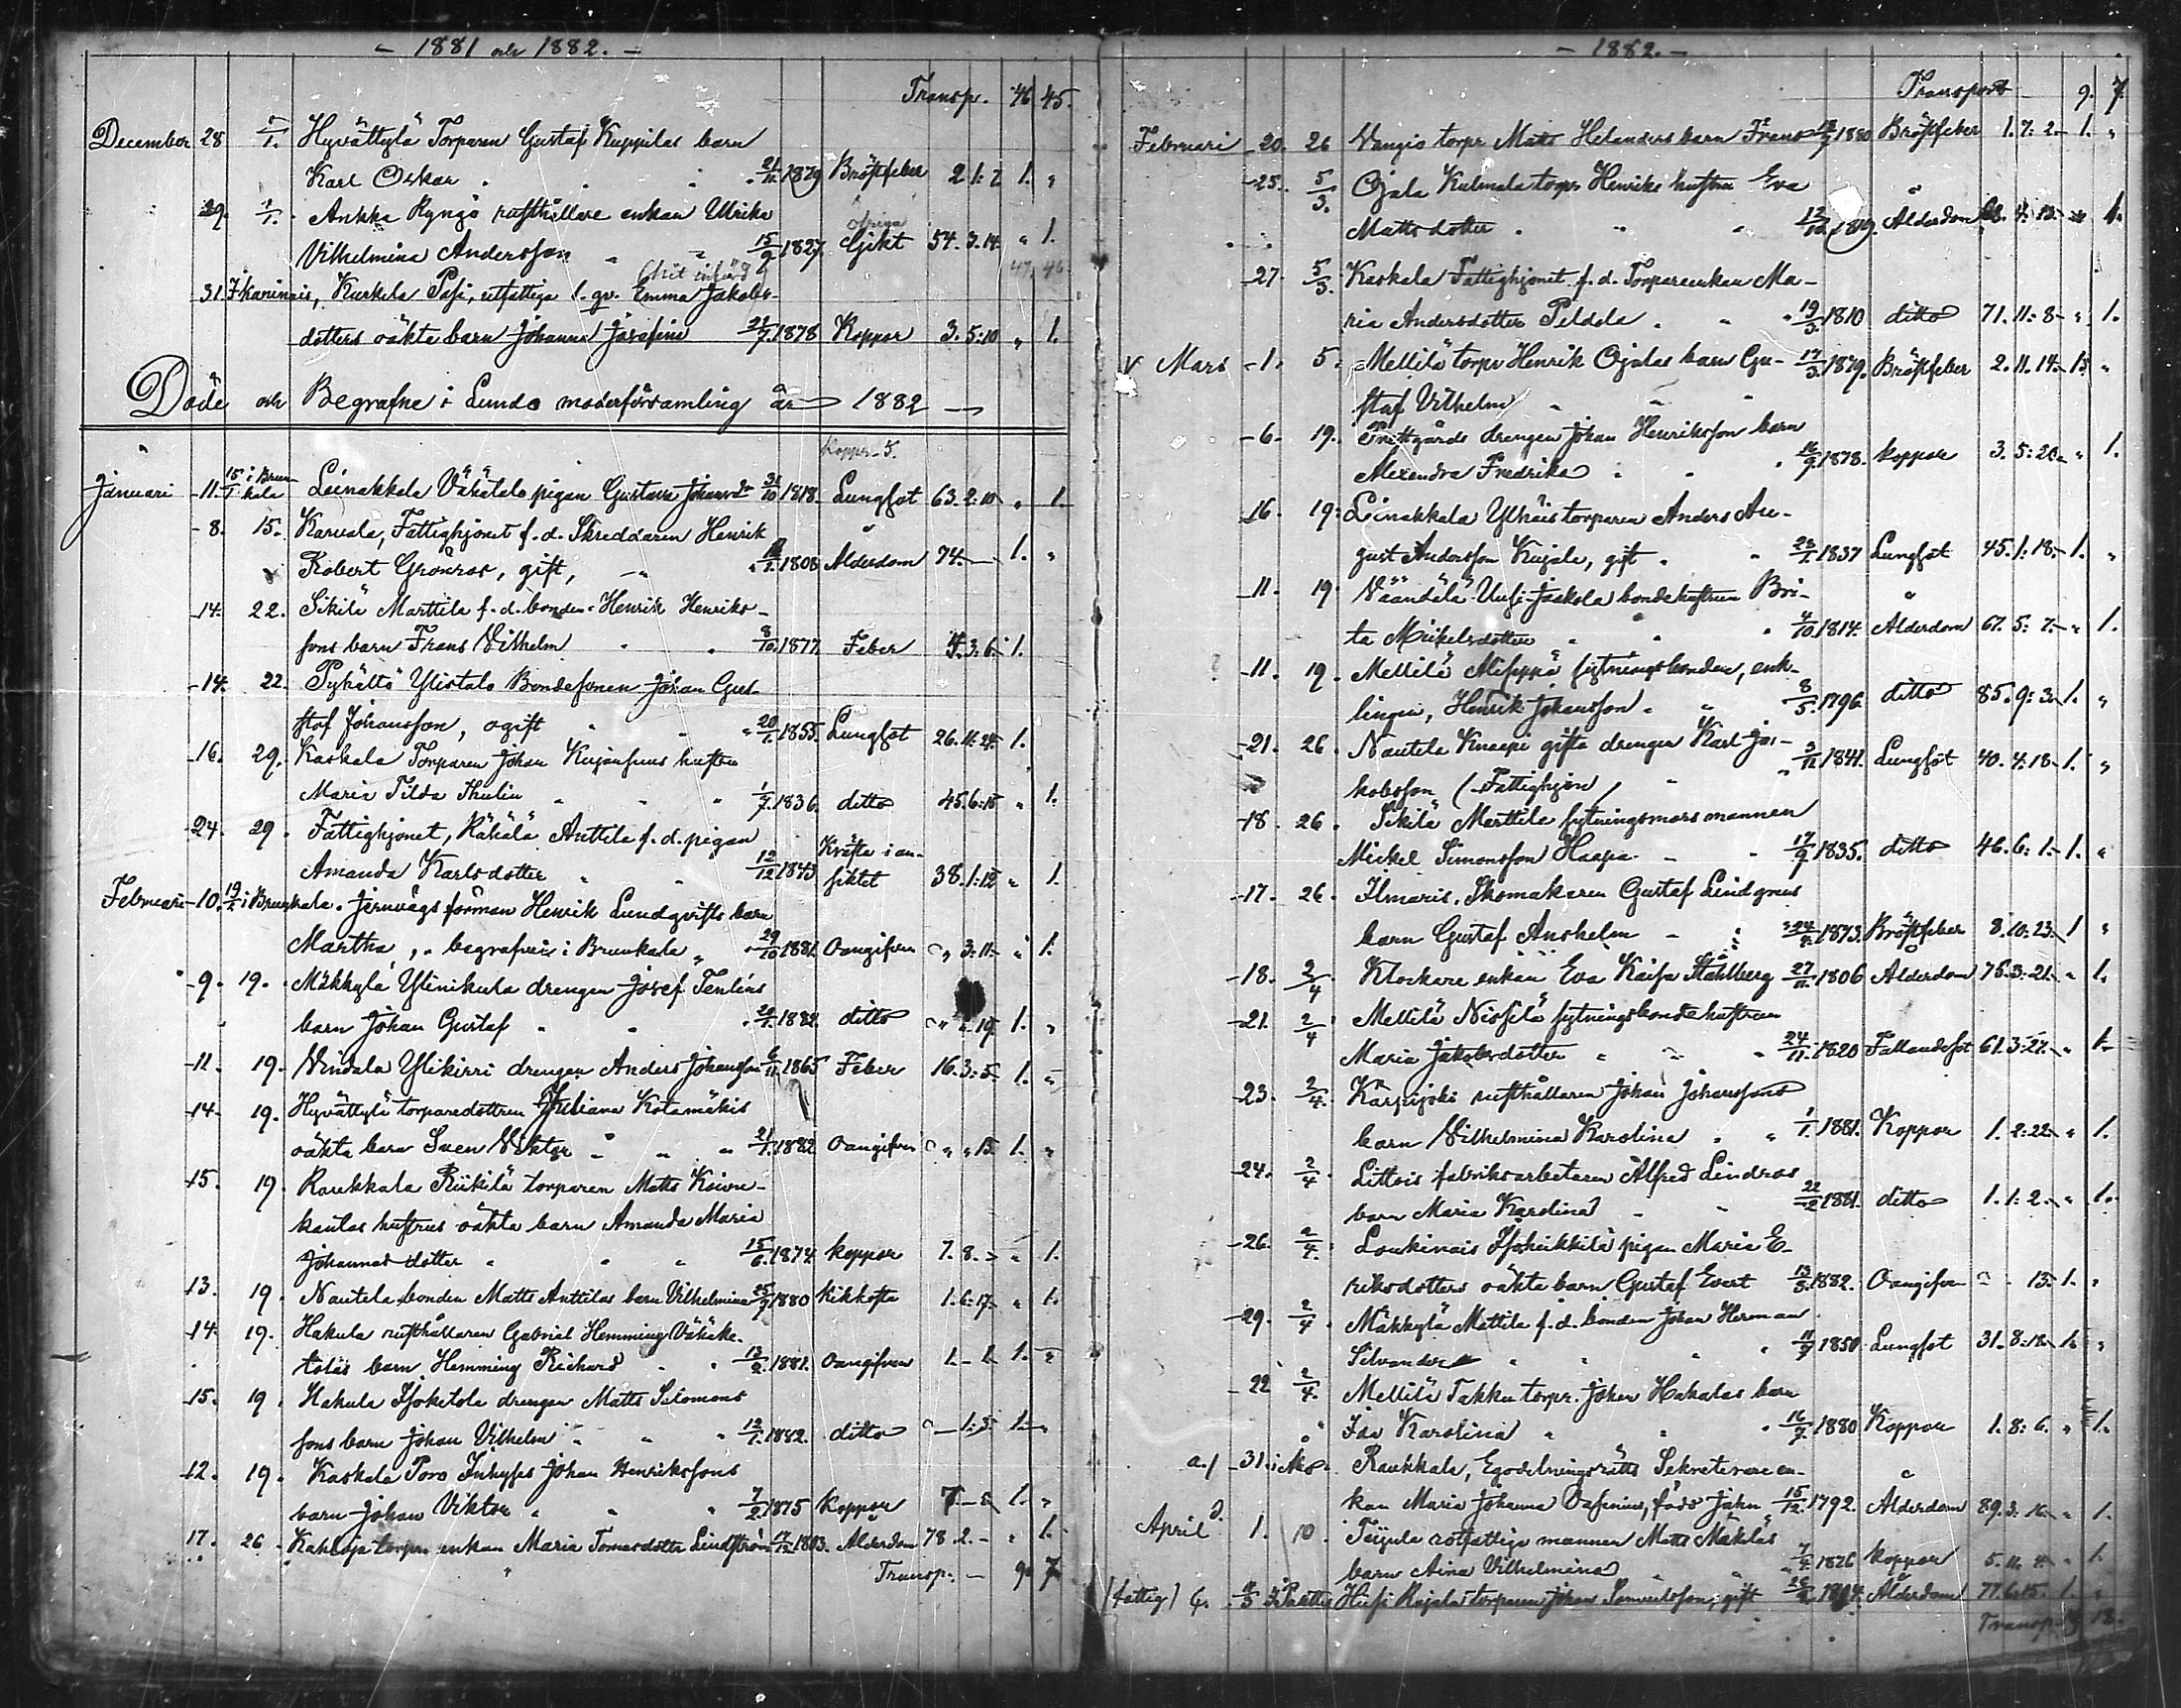 - 1881 och 1882. -
Transp. 46 45.
December 28 1/1. Hyvättylä Torparen Gustaf Kuppilas barn
Karl Oskar 21/11. 1879 Bröstfeber 2. 1. 7. 1. "
29. 1/1. Ankka Ryngö rusthållare enkan Ulrika
Vilhelmina Andersson 15/9 1827. Gikt 54. 3. 14. " 1.
47. 46
31. Ikarinais, Kurkela Pasi, utfattiga l. qv. Emma Jakobs-
dotters oäkta barn Johanna Josefina 21/7. 1878 Koppor 3. 5: 10 " 1.
Döde och Begrafne i Lundo moderförsamling år 1882
Koppor 5.
Januari 11. 15/1 i Brun-kala Leinakkala Vähätalo pigan Gustava Johansdr 31/10 1818. Lungsot 63. 2: 10 " 1.
8. 15. Karvala, Fattighjonet f. d. Skreddaren Henrik
Robert Grönros, gift, 1808 Ålderdom 74. — 1. "
14. 22. Sikilä Marttila f. d. bonden Henrik Henriks-
sons barn Frans Vilhelm 8/10. 1877. Feber 4. 3: 6. 1.
14. 22. Pyhältö Ylistalo Bondesonen Johan Gus-
staf Johansson, ogift 20/1. 1855. Lungsot 26. 11. 24. 1.
16. 29. Kaskala Torparen Johan Kujanpuus hustru
Maria Tilda Thulin 1/7. 1836. ditto 45. 6: 15 " 1.
24. 29. Fattighjonet, Rähälä Anttila f. d. pigan Kräfta i an-
Amanda Karlsdotter 12/12. 1843 siktet 38. 1: 12 " 1.
Februari 10. 19/2 i Brunkala. Jernvägs förman Henrik Lundqvists barn
Martha, begrafven i Brunkala 29/10 1881. Oangifven " 3: 11. " 1.
9. 19. Mäkkylä Ylinikula drengen Josef Tenléns
barn Johan Gustaf 20/1. 1882. ditto " " 19. 1. "
11. 19. Vindala Ylikirri drengen Anders Johansson 6/11. 1865 Feber 16. 3: 5. 1. "
14. 19. Hyvättylä torparedottren Juliana Kotamäkis
oäkta barn Sven Viktor 21/1. 1882 Oangifven " " 15. 1. "
15. 19. Raukkala Riikilä torparen Matts Koivu-
kantas hustrus oäkta barn Amanda Maria
Johannasdotter 15/6. 1874. Koppor 7. 8. " " 1.
13. 19. Nautela bonden Matts Anttilas barn Vilhelmina 25/7 1880 Kikhosta 1. 6: 17. " 1.
14. 19. Hakula rusthållaren Gabriel Hemming Vähäke-
talas barn Hemming Richard 13/2. 1881. Oangifven 1. - 1. 1. "
15. 19. Hakula Isoketola drengen Matts Salomons-
sons barn Johan Vilhelm 12/1. 1882. ditto — 1: 3. 1. "
12. 19. Kaskala Poro Inhyses Johan Henrikssons
barn Johan Viktor 7/2. 1875 Koppor 7. — 5. 1. "
17. 26. Kahloja torpr. enkan Maria Tomasdotter Lindström 17/12. 1803. Ålderdom 78. 2. - " 1.
Transp. — 9. 7.
- 1882. -
Transport 9. 7.
Februari 20. 26 Vangio torpr. Matts Helanders barn Frans 1880 Bröstfeber 1. 7: 2. 1. "
25. 5/3. Ojala Kulmala torpr. Henriks hustru Eva
Mattsdotter 1819. Ålderdom 1.
27. 5/3. Kaskala Fattighjonet f. d. Torpareenkan Ma-
ria Andersdotter Peldola 19/3. 1810 ditto 71. 11: 8. " 1.
Mars 1. 5. Mellilä torpr Henrik Ojalas barn Gu- 17/3. 1879. Bröstfeber 2. 11. 14. 1. "
staf Vilhelm
6. 19. Prettgårds drengen Johan Henriksson barn
Alexandra Fredrika 16/9. 1878. Koppor 3. 5: 20. " 1.
16. 19. Leinakkala Ylhäis torparen Anders Au-
gust Andersson Kujala, gift 28/1. 1837 Lungsot 45. 1: 18. 1. "
11. 19. Väändelä Uusi-Jaakola bondehustrun Bri-
ta Mickelsdotter 4/10. 1814. Ålderdom 67. 5: 7. " 1.
11. 19. Mellilä Alaseppä sytningsbonden, enk-
lingen, Henrik Johansson 8/5. 1796. ditto 85. 9: 3. 1. "
21. 26. Nautela Knaapi gifta drengen Karl Ja- 3/11. 1841. Lungsot 40. 4: 18. 1. "
kobsson (Fattighjon)
18. 26. Sikilä Marttila sytningsmors mannen
Mickel Simonsson Haapa 17/9 1835. ditto 46. 6: 1. 1. "
17. 26. Ilmaris, Skomakaren Gustaf Lindgrens
barn Gustaf Anshelm 24/4. 1873. Bröstfeber 8. 10: 23. 1 "
18. 2/4 Klockare enkan Eva Kaisa Ståhlberg 27/11. 1806 Ålderdom 75. 3: 21. " 1.
21. 2/4 Mellilä Nissilä sytningsbondehustrun
Maria Jakobsdotter 24/11. 1820 Fallandesot 61. 3: 27. " 1.
23. 2/4. Kärpijoki rusthållaren Johan Johanssons
barn Vilhelmina Karolina 1/1. 1881. Koppor 1. 2: 22. " 1.
24. 2/4. Littois fabriksarbetaren Alfred Lindros
barn Maria Karolina 22/2 1881. ditto 1. 1: 2. " 1.
26. 2/4. Loukinais Isoheikkilä pigan Maria E-
riksdotters oäkta barn Gustaf Evert 13/3. 1882. Oangifven - 13. 1. "
29. 2/4. Mäkkylä Mattila f. d. bonden Johan Herman
Silvander 11/7 1850. Lungsot 31. 8: 18. 1. "
22 2/4. Mellilä Takku torpr. Johan Hakalas barn
Ida Karolina 16/7. 1880 Koppor 1. 8: 6. " 1.
a.) 31. i Åbo. Raukkala, Egodelningsrätts Sekreterare en-
kan Maria Johanna Vasenius, född Jahn 15/12. 1792. Ålderdom 89. 3. 16. " 1.
April 1. 10. Teijula rotfattige mannen Matts Mäkeläs
barn Aina Vilhelmina 7/4. 1876 Koppor 5. 11. 4. " 1.
(fattig) 4. Husi Rajala torparen Johan Samuelsson, gift 1804. Ålderdom 77. 6: 15. 1. "
Transp. 18.